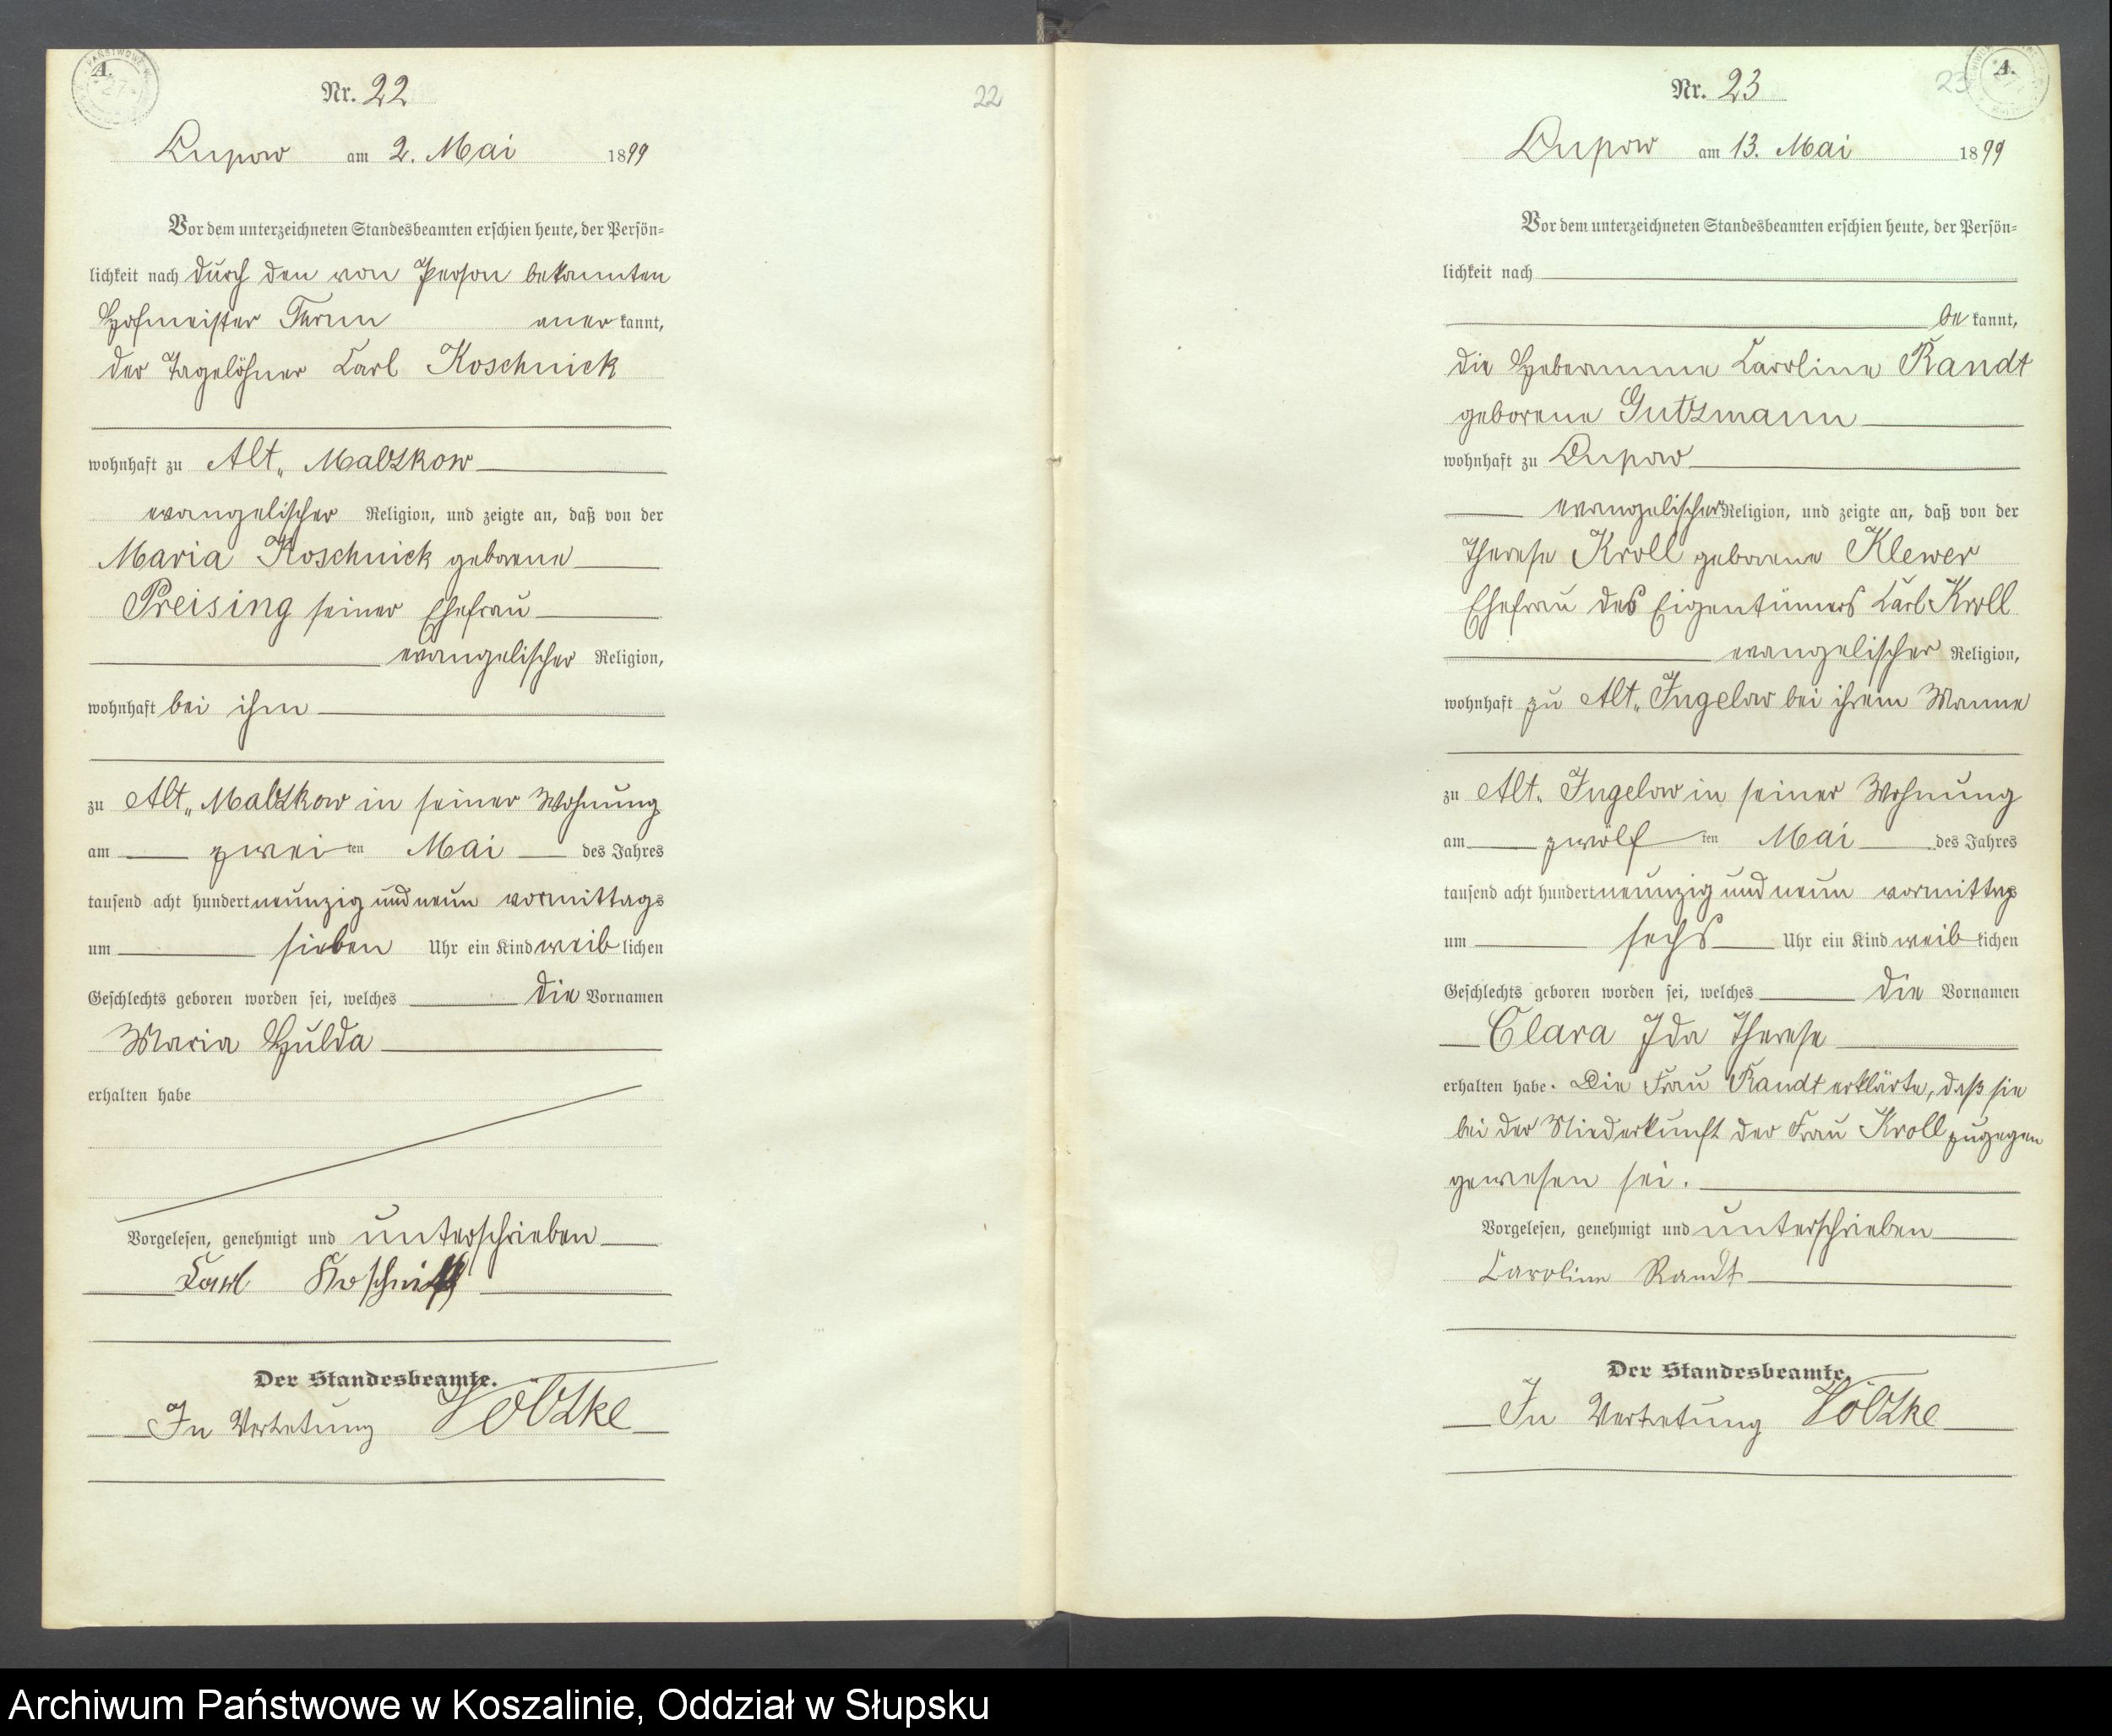 A.
Nr. 22
22
Lupow am 2. Mai 1899
Vor dem unterzeichneten Standesbeamten erschien heute, der Persön-
lichkeit nach durch den von Person bekannten
Hofmeister anerkannt,
der Tagelöhner Carl Koschnick
wohnhaft zu Alt„ Malzkow
evangelischer Religion, und zeigte an, daß von der
Maria Koschnick geborene
Preising seiner Ehefrau
evangelischer Religion,
wohnhaft bei ihm
zu Alt„ Malzkow in seiner Wohnung
am zweiten Mai des Jahres
tausend acht hundert neunzig und neun vormittags
um sieben Uhr ein Kind weiblichen
Geschlechts geboren worden sei, welches die Vornamen
Maria Hulda
erhalten habe
Vorgelesen, genehmigt und unterschrieben
Carl Koschnick
Der Standesbeamte.
In Vertretung Völzke
A.
Nr. 23
23
Lupow am 13. Mai 1899
Vor dem unterzeichneten Standesbeamten erschien heute, der Persön-
lichkeit nach
bekannt,
die Hebeamme Caroline Randt
geborene Gutzmann
wohnhaft zu Lupow
evangelischer Religion, und zeigte an, daß von der
Therese Kroll geborene Klewer
Ehefrau des Eigentümers Carl Kroll
evangelischer Religion,
wohnhaft zu Alt„ Jugelow bei ihrem Manne
zu Alt„ Jugelow in seiner Wohnung
am zwölften Mai des Jahres
tausend acht hundert neunzig und neun vormittags
um sechs Uhr ein Kind weiblichen
Geschlechts geboren worden sei, welches die Vornamen
Clara Ida Therese
erhalten habe. Die Frau Randt erklärte, daß sie
bei der Niederkunft der Frau Kroll zugegen
gewesen sei.
Vorgelesen, genehmigt und unterschrieben
Caroline Randt
Der Standesbeamte.
In Vertretung Völzke
Archiwum Państwowe w Koszalinie, Oddział w Słupsku